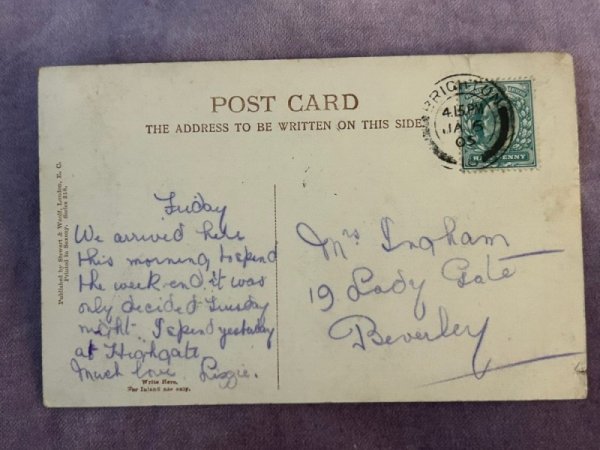 POST CARD
THE ADDRESS TO BE WRITTEN ON THIS SIDE
BRIGHTON
4.15 PM
JA 6
05
HALFPENNY
Published by Stewart & Woolf, London, E. C.
Printed in Saxony. Series 218.
Friday
We arrived here
this morning to spend
the week-end. it was
only decided Tuesday
night. I spent yesterday
at Highgate.
Much love Lizzie.
Write Here.
For Inland use only.
Mrs Ingham
19 Lady Gate
Beverley